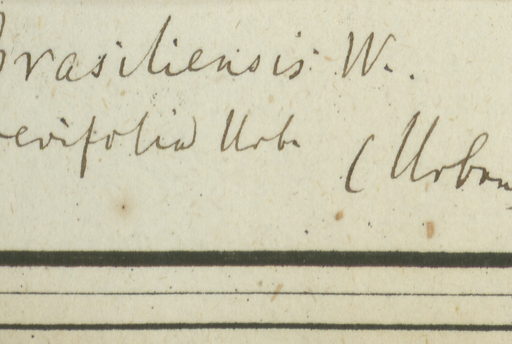 brasiliensis W.
revifolia Urb. (Urban